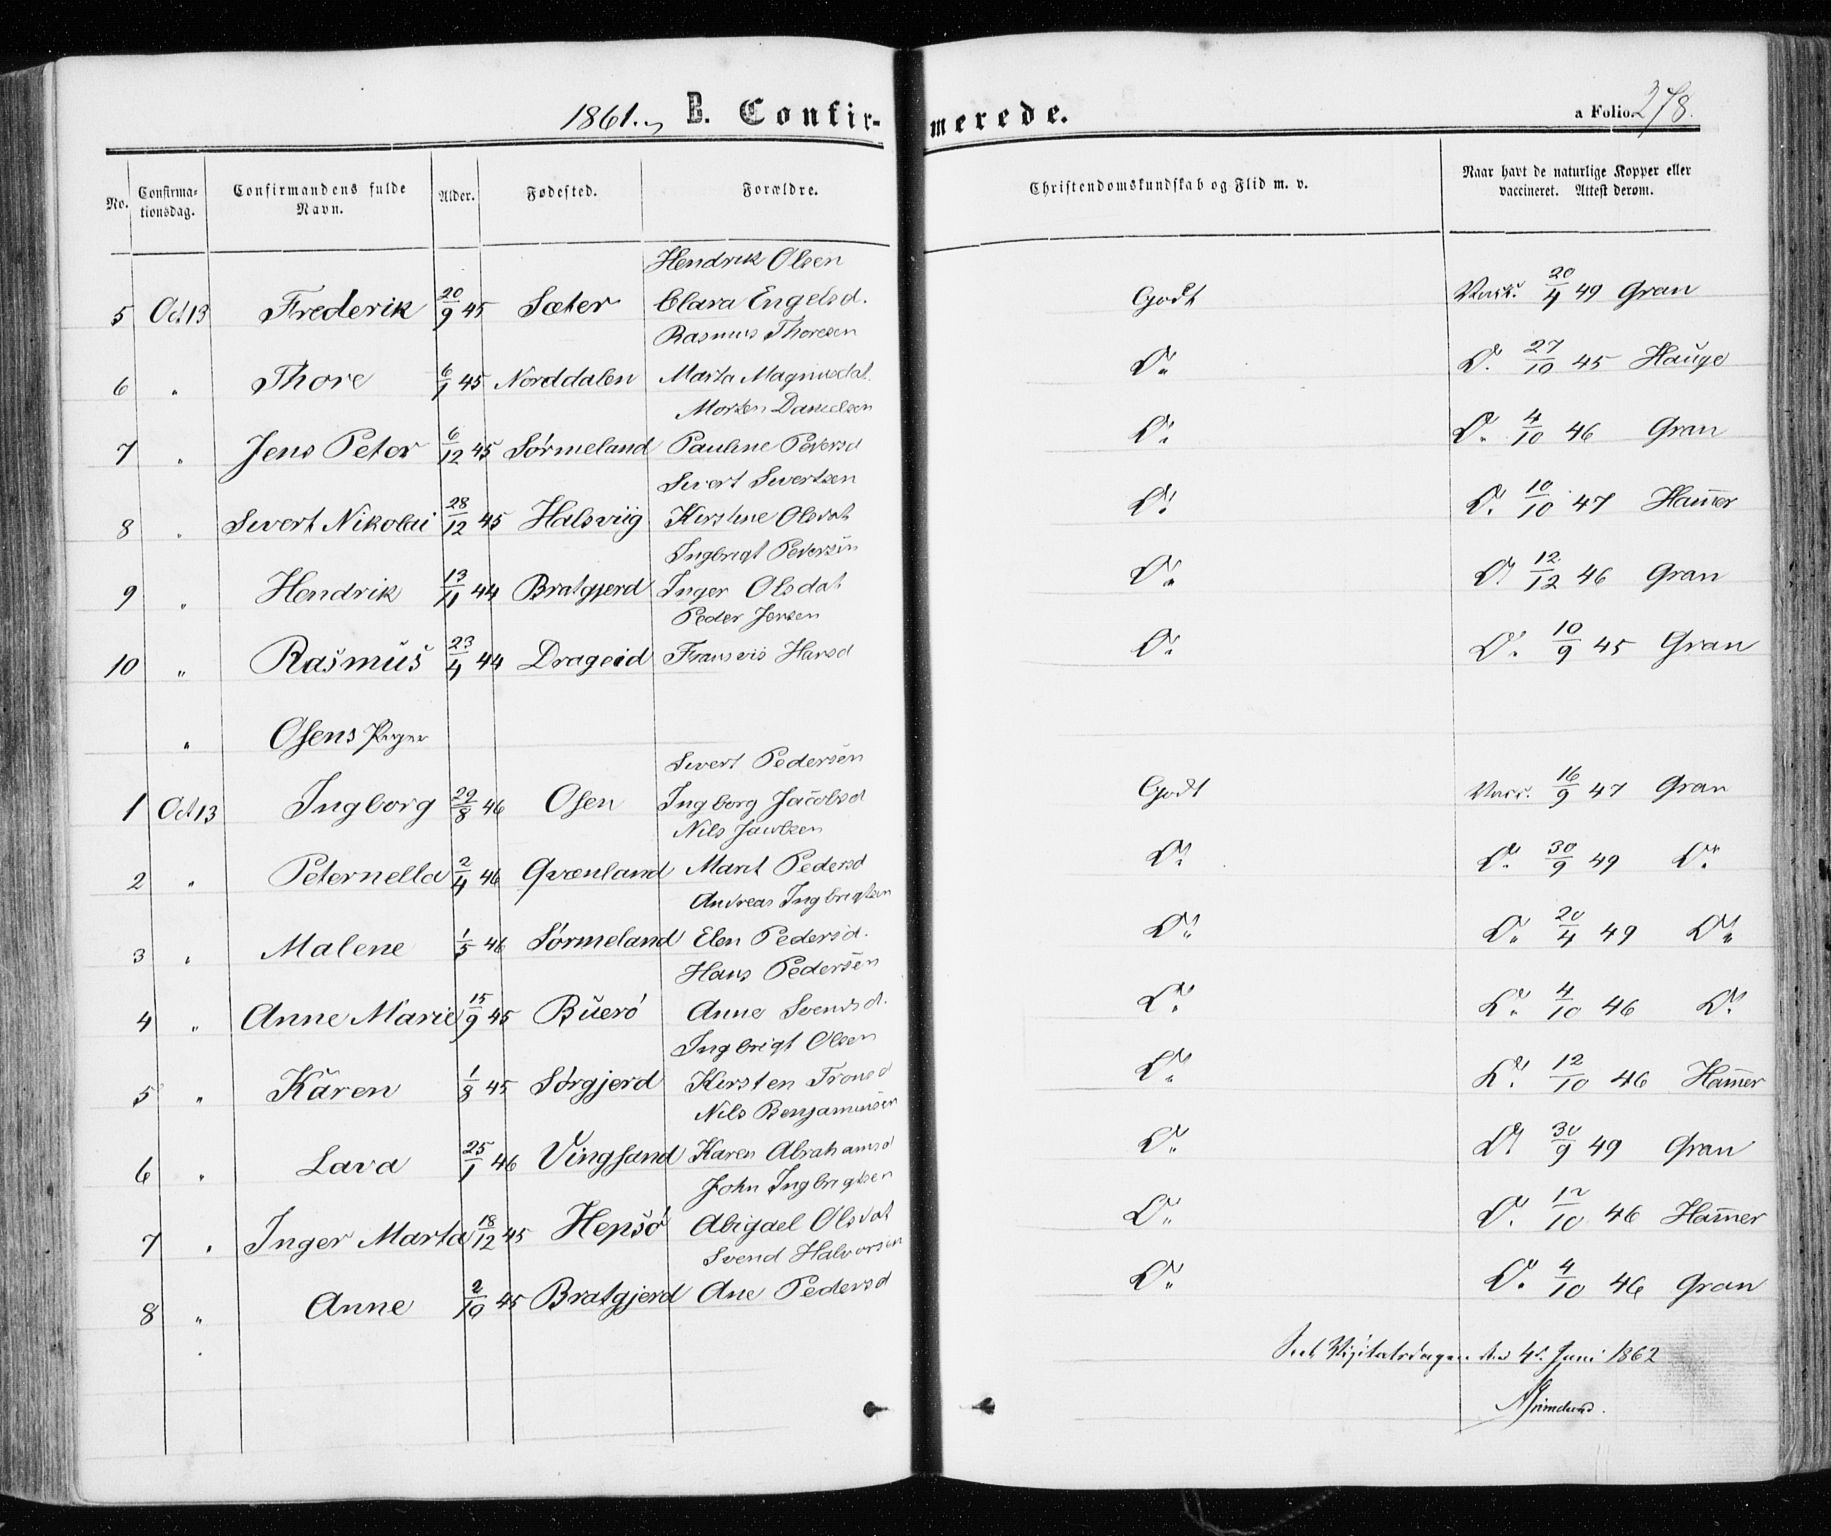 1861. B. Confirmerede. a Folio 278.
No. Confirmationsdag. Confirmandens fulde Navn. Alder. Fødested. Forældre. Christendomskundskab og Flid m. v. Naar havt de naturlige Kopper eller vaccineret. Attest derom.
Hendrik Olsen
5 Oct 13 Frederik 20/9 45 Sæter Clara Engelsd. Godt Vacc. 20/4 49 Gran
Rasmus Thoresen
6 " Thore 6/1 45 Norddalen Marta Magnusdat. Do D. 27/10 45 Hauge
Morten Danielsen
7 " Jens Peter 6/12 45 Sørmeland Pauline Pedersd Do Do 4/10 46 Gran
Sivert Sivertsen
8 " Sivert Nikolai 28/12 45 Halsviig Kirstine Olsdat Do Do 10/10 47 Ham̅er
Ingbrigt Pedersen
9 " Hendrik 13/11 44 Bratgjerd Inger Olsdat Do Do 12/12 46 Gran
Peder Jensen
10 " Rasmus 23/4 44 Drageid Fransvis Hansd Do Do 10/9 45 Gran
" Osens Piger
Sivert Pedersen
1 Oct 13 Ingborg 29/8 46 Osen Ingborg Jacobsd Godt Vacc. 16/9 47 Gran
Nils
2 " Peternella 2/4 46 Qvænland Marit Pedersd Do Do 30/9 49 Do
Andreas Ingbrigtsen
3 " Malene 1/5 46 Sørmeland Elen Pedersd. Do Do 20/4 49 Do
Hans Pedersen
4 " Anne Marie 15/9 45 Buerø Anne Svendsd. Do Do 4/10 46 Do
Ingbrigt Olsen
5 " Karen 1/8 45 Sørgjerd Kirsten Tronsd Do Do 12/10 46 Ham̅er
Nils Benjaminsen
6 " Lava 25/1 46 Vingsand Karen Abrahamsd Do Do 30/9 49 Gran
John Ingbrigtsen
7 " Inger Marta 18/12 45 Hepsø Abigael Olsdat Do Do 12/10 46 Ham̅er
Svend Halvorsen
8 " Anne 2/10 45 Bratgjerd Ane Pedersd Do Do 4/10 46 Gran
Visitatsdagen den 4de Juni 1862